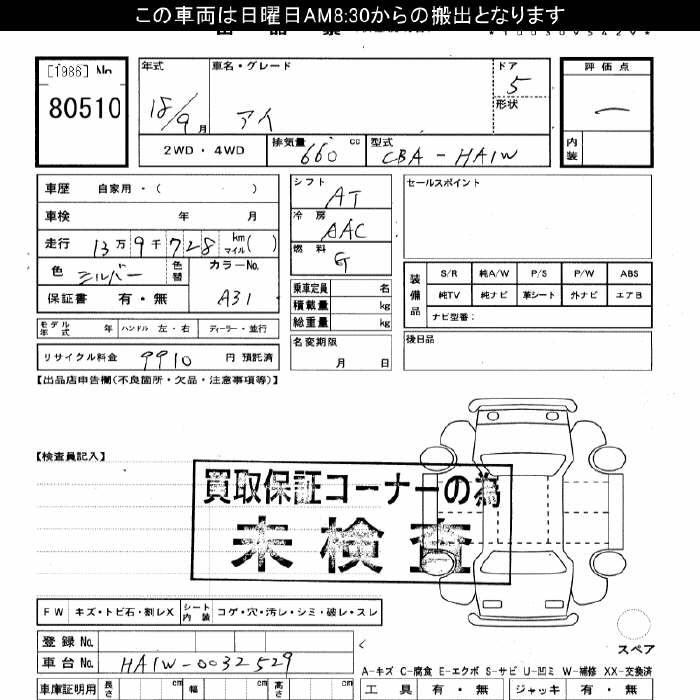 この車両は日曜日AM8:30からの搬出となります
[1986] No.
80510
年式
18/9 月
車名・グレード
アイ
ドア
5
形状
評価点
一
内装
2WD・4WD
排気量 660 cc
型式 CBA-HA1W
車歴 自家用・( )
車検 年 月
走行 13万9千728 km マイル( )
色 シルバー 色替
カラーNo. A31
保証書 有・無
モデル年式 年 ハンドル 左・右 ディーラー・並行
リサイクル料金 9910 円 預託済
シフト AT
冷房 AAC
燃料 G
乗車定員 名
積載量 kg
総重量 kg
名変期限
月 日
セールスポイント
装備品
S/R 純A/W P/S P/W ABS
純TV 純ナビ 革シート 外ナビ エアB
ナビ型番:
後日品
【出品店申告欄(不良箇所・欠品・注意事項等)】
【検査員記入】
買取保証コーナーの為
未検査
FW キズ・トビ石・割レX シート内装 コゲ・穴・汚レ・シミ・破レ・スレ
登録No.
車台No. HA1W-0032529
スペア
A-キズ C-腐食 E-エクボ S-サビ U-凹ミ W-補修 XX-交換済
車庫証明用 長さ cm 幅 cm 高さ cm
工具 有・無 ジャッキ 有・無